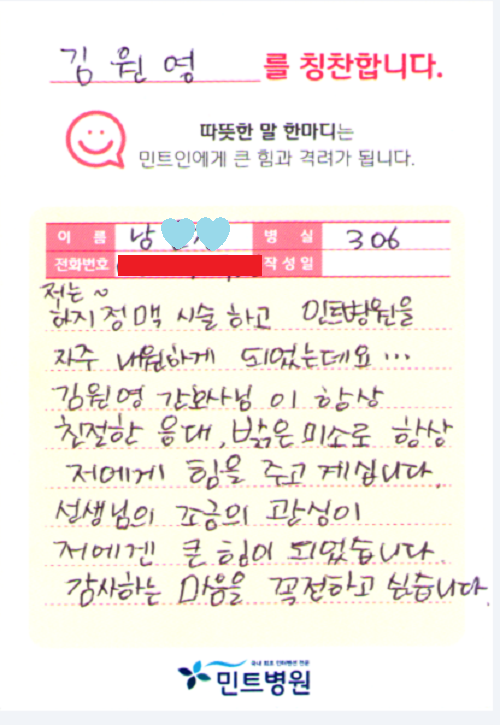 김원영 를 칭찬합니다.
따뜻한 말 한마디는
민트인에게 큰 힘과 격려가 됩니다.
이 름 남 병 실 306
전화번호 작성일
저는~
하지정맥 시술하고 민트병원을
자주 내원하게 되었는데요...
김원영 간호사님이 항상
친절한 응대, 밝은 미소로 항상
저에게 힘을 주고 계십니다.
선생님의 조금의 관심이
저에겐 큰 힘이 되었습니다.
감사하는 마음을 꼭 전하고 싶습니다.
국내 최초 인터벤션 전문
민트병원